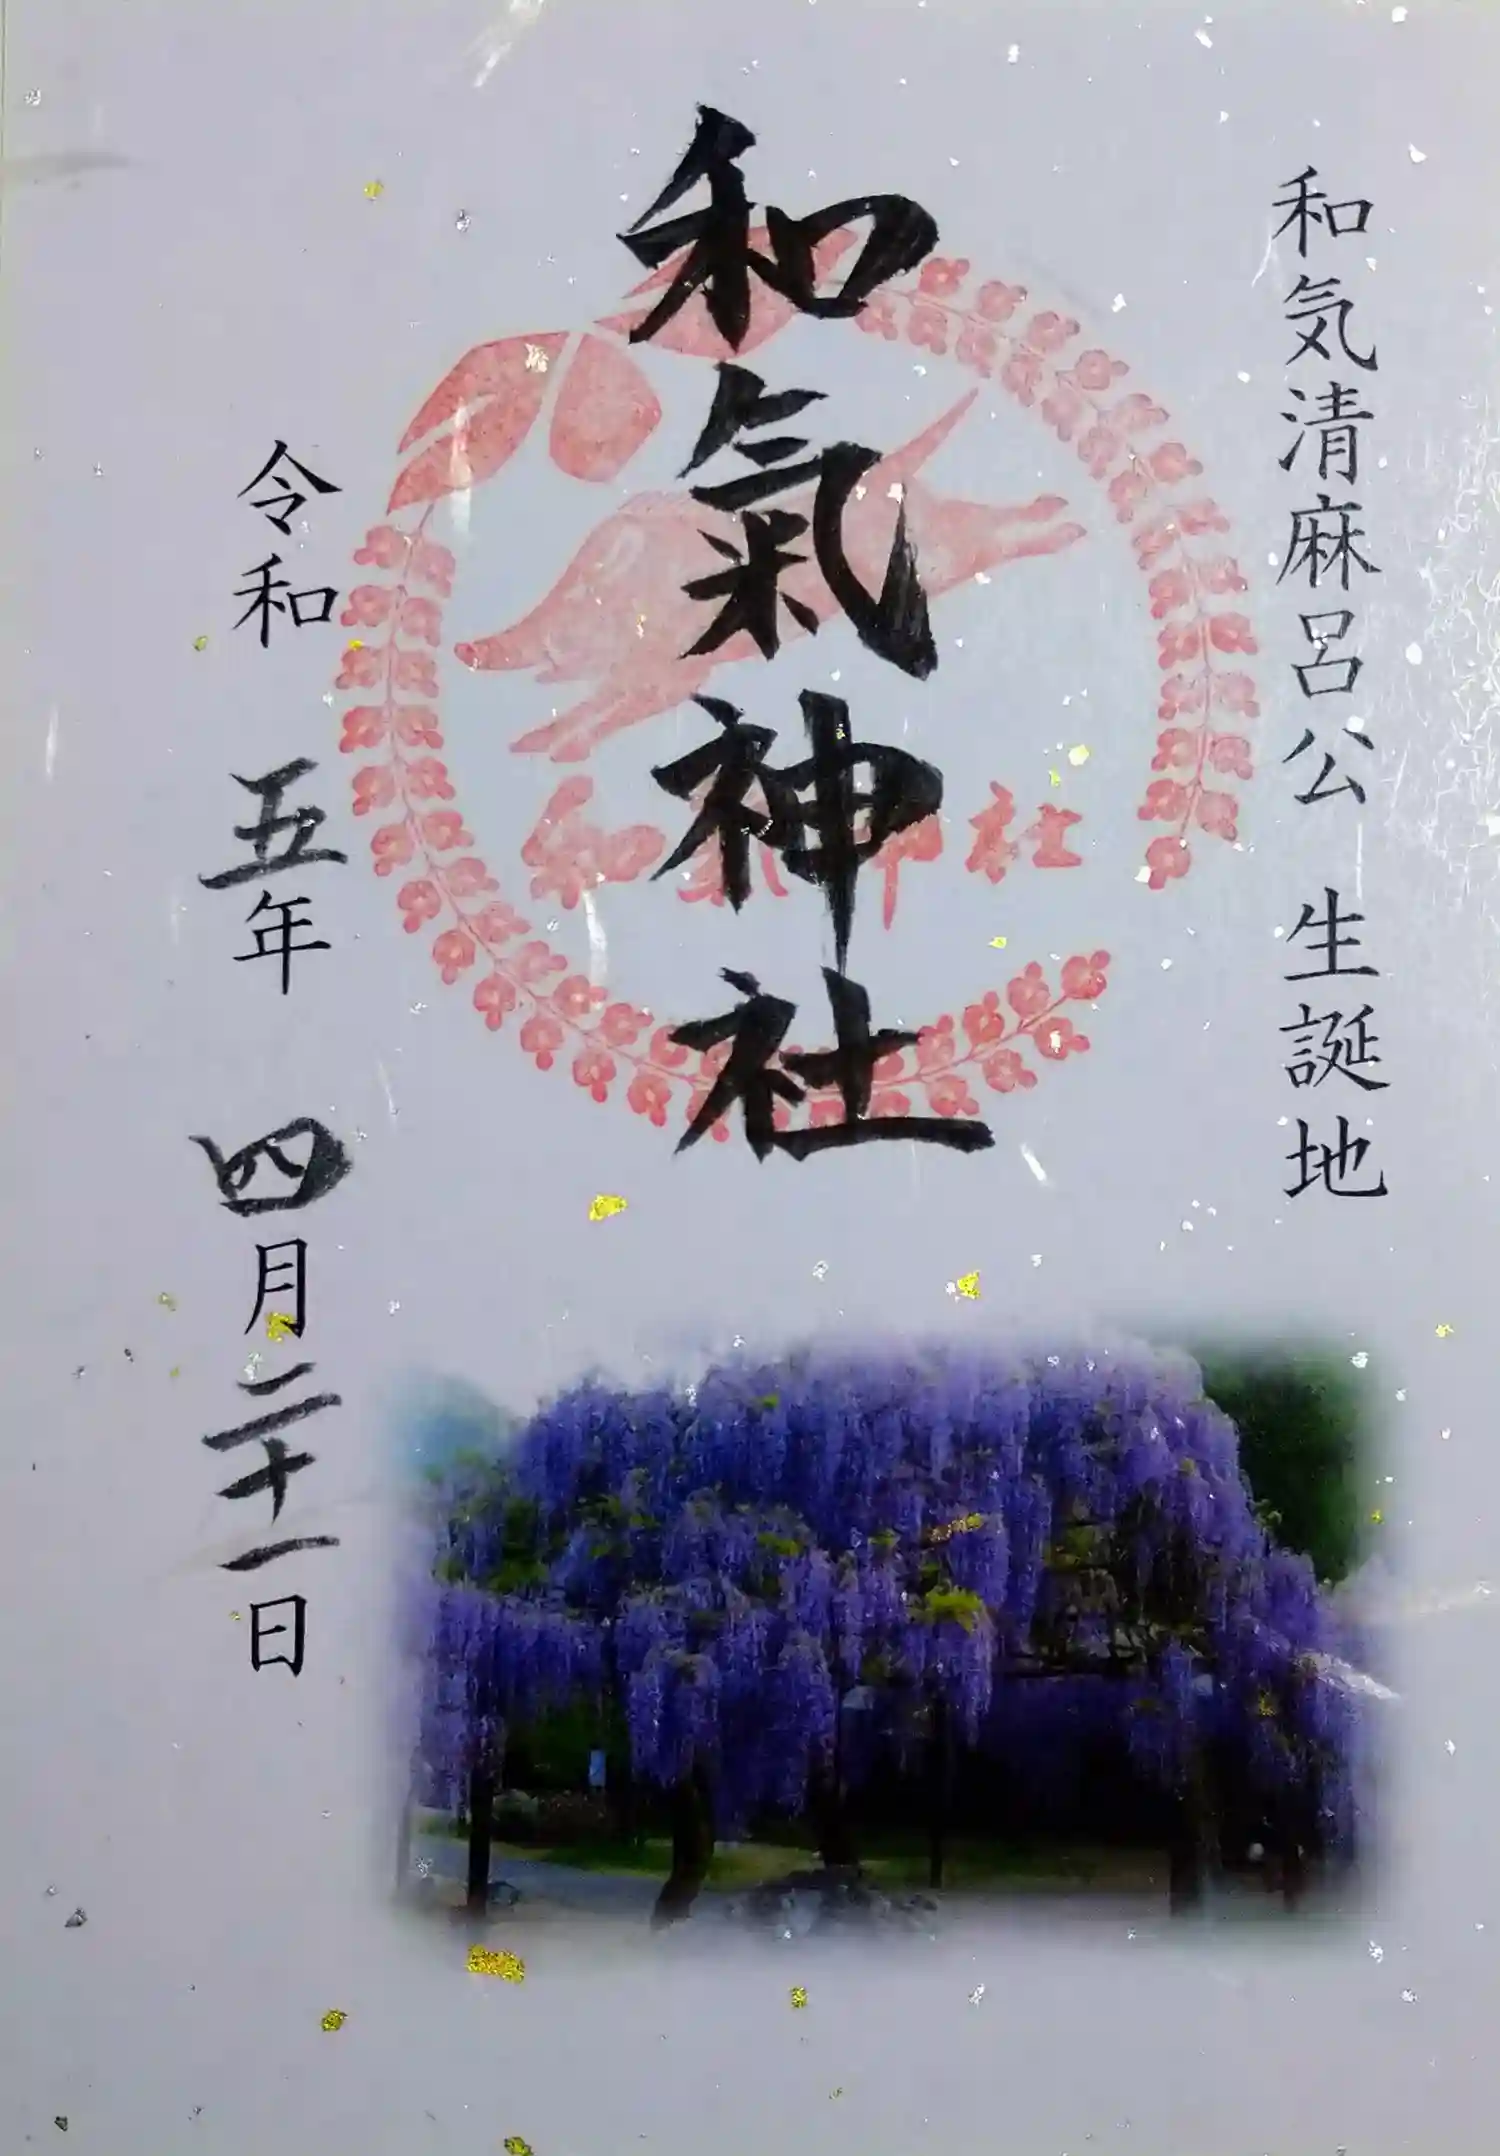 和気清麻呂公 生誕地
和氣神社
和氣神社
令和 五年 四月二十一日